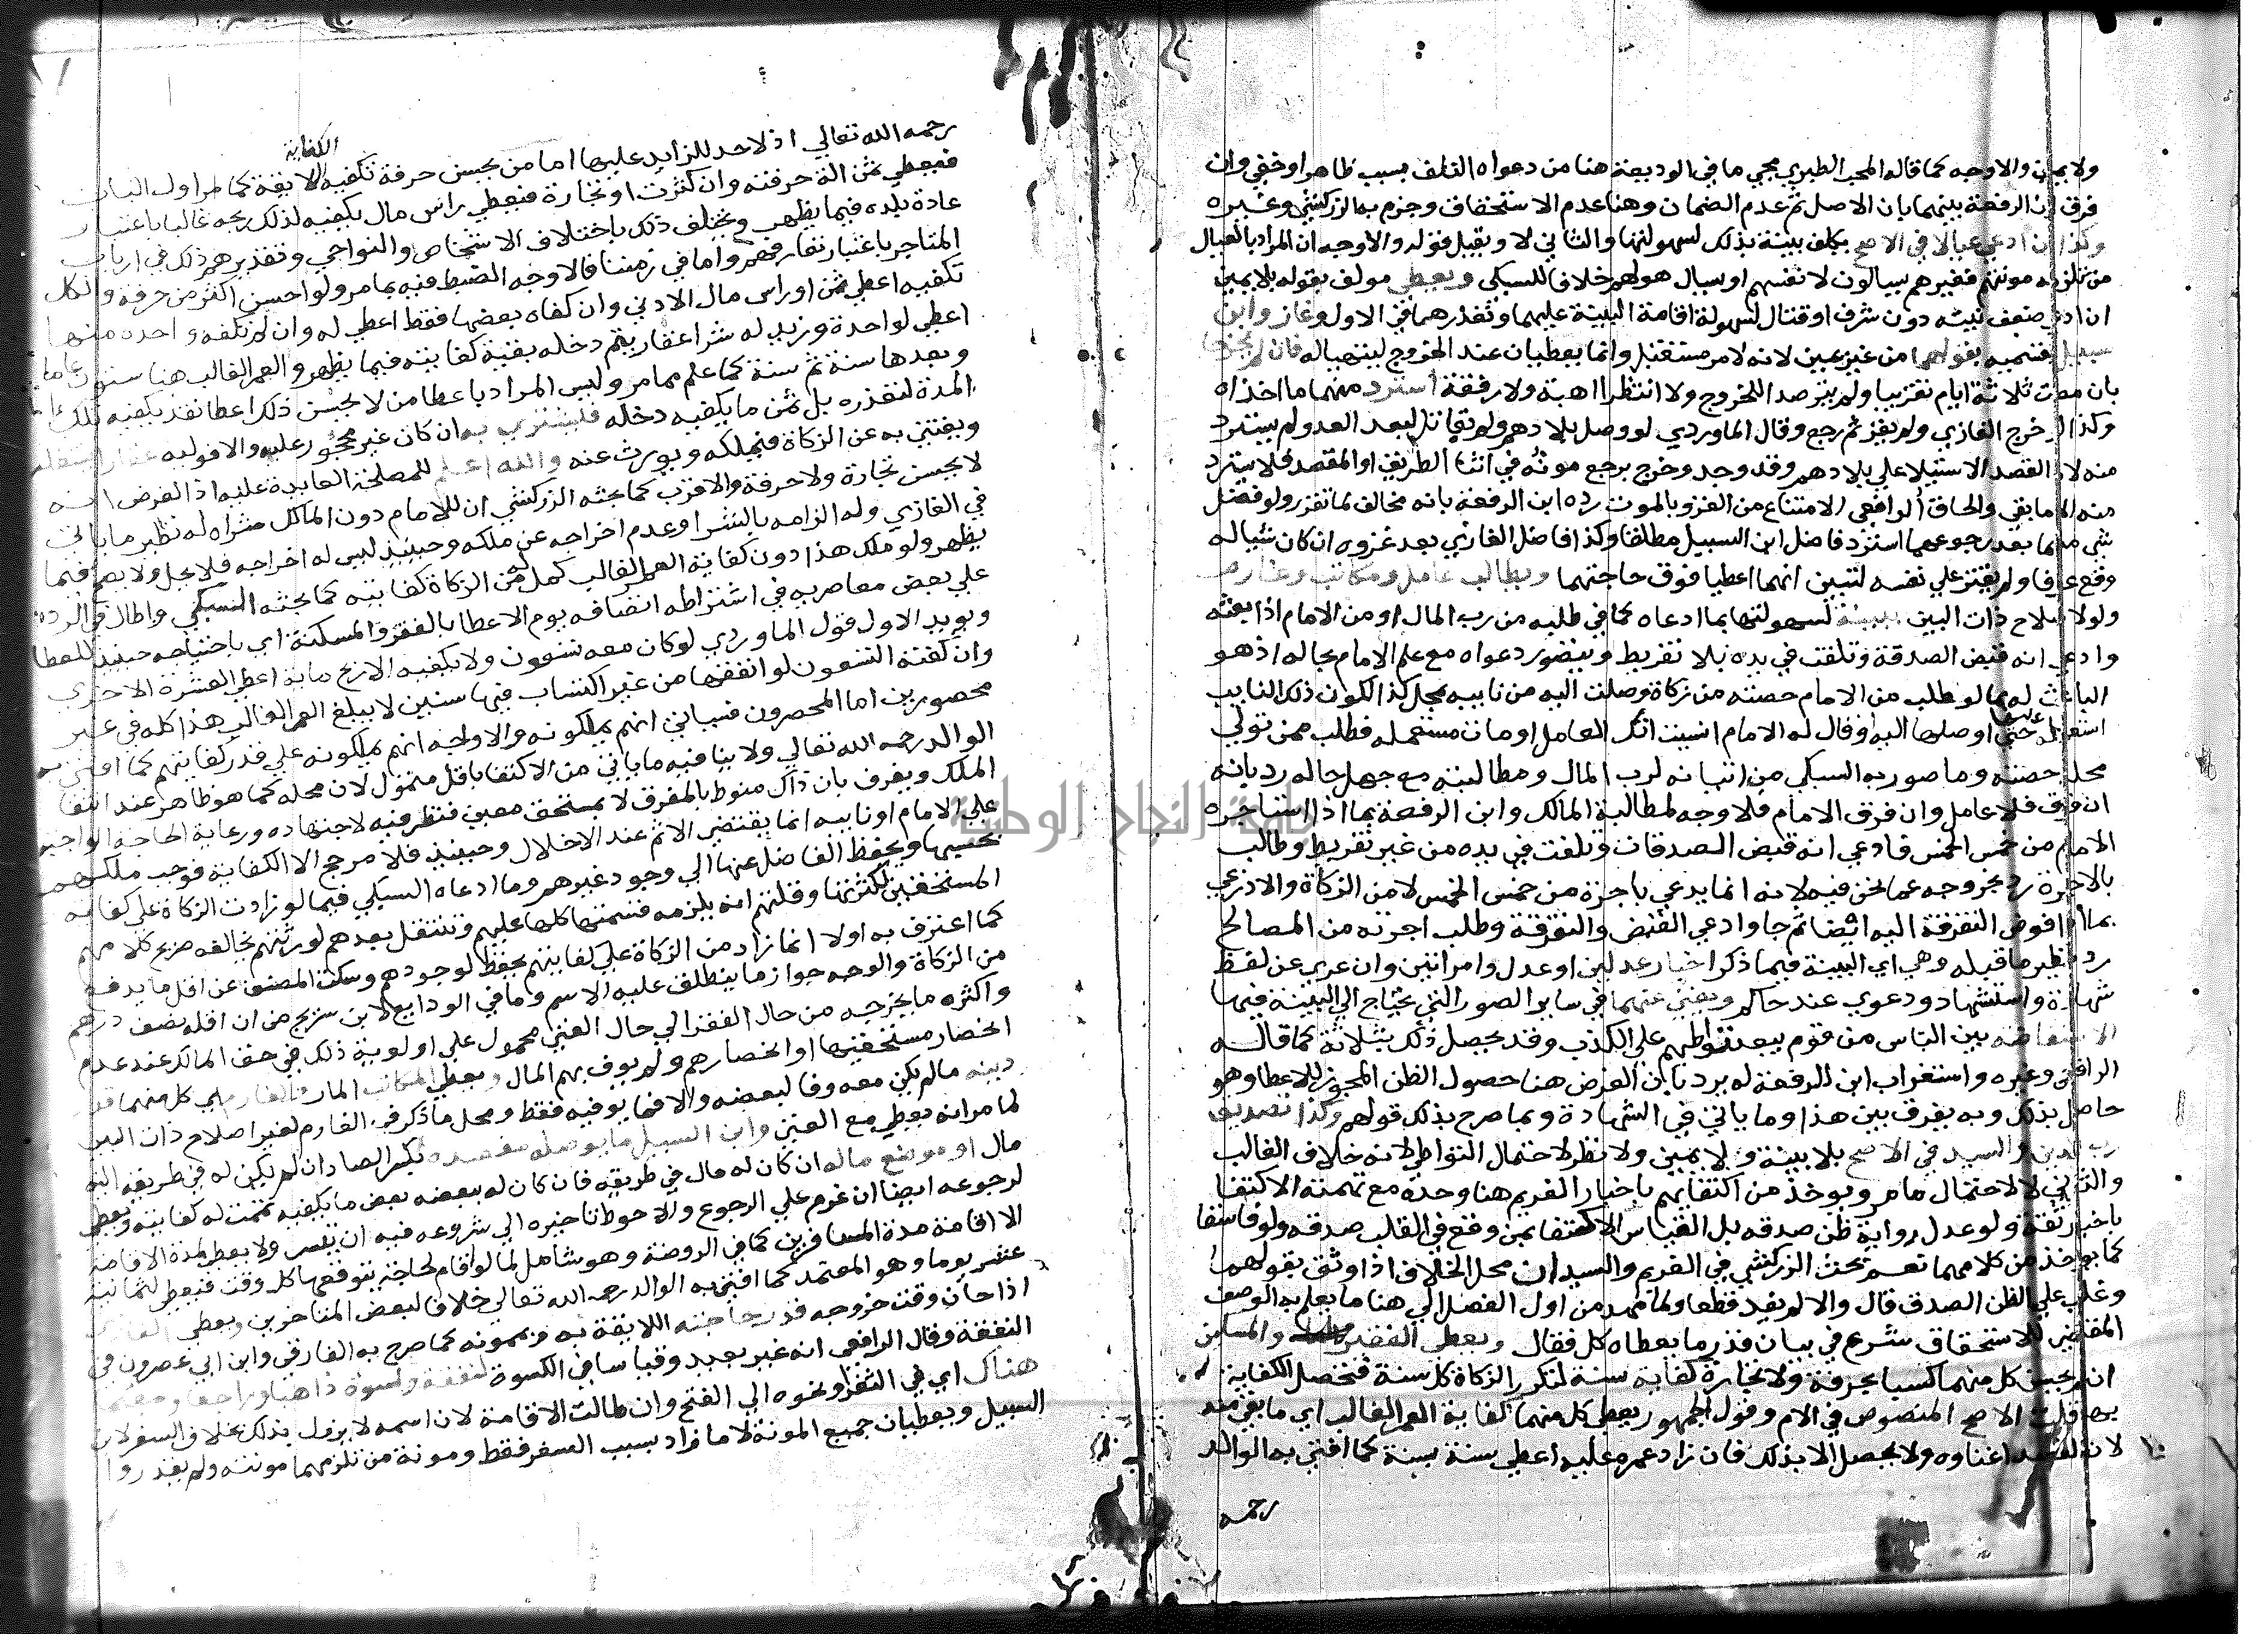 ولا يمين والاوجه كما قاله المحب الطبري مجي ما في الوديعة هنا من دعواه التلف بسبب ظاهر او خفي وان
فرق ابن الرفعة بينهما بان الاصل ثم عدم الضمان وهنا عدم الاستحقاق وجزم به الزركشي وغيره
وكذا ان ادعي عيالا في الاصح يكلف ببينة بذلك لسهولتها والثاني لا ويقبل قوله والاوجه ان المراد بالعيال
من تلزمه مونتهم فغيرهم يسالون لانفسهم او يسال هو لهم خلافا للسبكي ويعطي مولف بقوله بلا يمين
ان ادعي ضعف نيته دون شرف او قتال لسهولة اقامة البينة عليهما وتعذرهما في الاول وغاز وابن
سبيل بقسميه بقولهما من غير يمين لانه لامر مستقبل وانما يعطيان عند الخروج ليتهيا له فان لم يخرجا
بان مضت ثلاثة ايام تقريبا ولم يترصدا للخروج ولا انتظرا اهبة ولا رفقة استرد منهما ما اخذاه
وكذا لو خرج الغازي ولم يغز ثم رجع وقال الماوردي لو وصل بلادهم ولم يقاتل لبعد العدو لم يسترد
منه لان القصد الاستيلا علي بلادهم وقد وجد وخرج برجع موته في اثنا الطريق او المقصد فلا يسترد
منه الا ما بقي والحاق الرافعي الامتناع من الغزو بالموت رده ابن الرفعة بانه مخالف لما تقرر ولو فضل
شي معهما بعد رجوعهما استرد فاضل ابن السبيل مطلقا وكذا فاضل الغازي بعد غزوه ان كان شيا له
وقع عرفا ولم يقتر علي نفسه لتبين انهما اعطيا فوق حاجتهما ويطالب عامل ومكاتب وغارم
ولو لاصلاح ذات البين ببينة لسهولتها بما ادعاه كما في طلبه من رب المال او من الامام اذا بعثه
وادعي انه قبض الصدقة وتلفت في يده بلا تفريط ويتصور دعواه مع علم الامام بحاله اذ هو
الباعث له بما لو طلب من الامام حصته من زكاة وصلت اليه من نايبه بمحل كذا لكون ذلك النايب
استعمله عليها حتي اوصلها اليه او قال له الامام انسيت انك العامل او مات مستعمله فطلب ممن تولي
محله حصته وما صور به السبكي من اتيانه لرب المال ومطالبته مع جهل حاله رد بانه
ان فرق فلا عامل وان فرق الامام فلا وجه لمطالبة المالك وابن الرفعة بما اذا استاجره
الامام من خمس الخمس فادعي انه قبض الصدقات وتلفت في يده من غير تفريط وطالب
بالاجرة رد بخروجه عما نحن فيه لانه انما يدعي باجرة من خمس الخمس لا من الزكاة والاذرعي
بما اذا فوض التفرقة اليه ايضا ثم جا وادعي القبض والتفرقة وطلب اجرته من المصالح
رد بنظير ما قبله وهي اي البينة فيما ذكر اخبار عدلين او عدل وامراتين وان عري عن لفظ
شهادة واستشهاد ودعوي عند حاكم ويغني عنهما في ساير الصور التي يحتاج الي البينة فيها
الاستفاضه بين الناس من قوم يبعد تواطيهم علي الكذب وقد يحصل ذلك بثلاثة كما قاله
الرافعي وغيره واستغراب ابن الرفعة له يرد بان الغرض هنا حصول الظن المجوز للاعطا وهو
حاصل بذلك وبه يفرق بين هذا وما ياتي في الشهادة وبما صرح بذلك قولهم وكذا تصديق
رب الدين والسيد في الاصح بلا بينة ولا يمين ولا نظر لاحتمال التواطي لانه خلاف الغالب
والثاني لا لاحتمال ما مر ويوخذ من اكتفايهم باخبار الغريم هنا وحده مع تهمته الاكتفا
باخبار ثقة ولو عدل رواية ظن صدقه بل القياس الاكتفا بمن وقع في القلب صدقه ولو فاسقا
كما يوخذ من كلامهما نعم بحث الزركشي في الغريم والسيد ان محل الخلاف اذا وثق بقولهما
وغلب علي الظن الصدق قال والا لم يفد قطعا ولما مهد من اول الفصل الي هنا ما يعلم به الوصف
المقتضي للاستحقاق شرع في بيان قدر ما يعطاه كل فقال ويعطي الفقير والمسكين
ان لم يحسن كل منهما كسبا بحرفة ولا تجارة كفاية سنة لتكرر الزكاة كل سنة فتحصل الكفاية
بها قلت الاصح المنصوص في الام وقول الجمهور يعطي كل منهما كفاية العمر الغالب اي ما بقي منه
لان القصد اغناوه ولا يحصل الا بذلك فان زاد عمره عليه اعطي سنة بسنة كما افتي به الوالد
رحمه
رحمه الله تعالي اذ لا حد للزايد عليها اما من يحسن حرفة تكفيه الكفاية اللايقة كما مر اول الباب
فيعطي ثمن الة حرفته وان كثرت او تجارة فيعطي راس مال يكفيه لذلك ربحه غالبا باعتبار
عادة بلده فيما يظهر ويختلف ذلك باختلاف الاشخاص والنواحي وتقديرهم ذلك في ارباب
المتاجر باعتبار تعارفهم واما في زمننا فالاوجه الضبط فيه بما مر ولو احسن اكثر من حرفة والكل
تكفيه اعطي ثمن او راس مال الادني وان كفاه بعضها فقط اعطي له وان لم تكفه واحده منها
اعطي لواحدة وزيد له شرا عقار يتم دخله بقية كفايته فيما يظهر والعمر الغالب هنا ستون عاما
وبعدها سنة ثم سنة كما علم مما مر وليس المراد باعطا من لا يحسن ذلك اعطا نقد يكفيه تلك
المدة لتعذره بل ثمن ما يكفيه دخله فيشتري به ان كان غير محجور عليه والا فوليه عقارا يستغله
ويغتني به عن الزكاة فيملكه ويورث عنه والله اعلم للمصلحة العايدة عليه اذ الفرض انه
لا يحسن تجارة ولا حرفة والاقرب كما بحثه الزركشي ان للامام دون المالك شراه له نظير ما ياتي
في الغازي وله الزامه بالشرا وعدم اخراجه عن ملكه وحينيذ ليس له اخراجه فلا يحل ولا يصح فيما
يظهر ولو ملك هذا دون كفاية العمر الغالب كمل له من الزكاة كفايته كما بحثه السبكي واطال في الرد
علي بعض معاصريه في اشتراطه اتصافه يوم الاعطا بالفقر والمسكنة اي باحتياجه حينيذ للمعطا
ويويد الاول قول الماوردي لو كان معه تسعون ولا يكفيه الا ربح ماية اعطي العشرة الاخري
وان كفته التسعون لو انفقها من غير اكتساب فيها سنين لا يبلغ العمر الغالب هذا كله في غير
محصورين اما المحصرون فسياتي انهم يملكونه والاوجه انهم يملكونه علي قدر كفايتهم كما افتي به
الوالد رحمه الله تعالي ولا ينافيه ما ياتي من الاكتفا باقل متمول لان محله كما هو ظاهر عند انتفا
الملك ويفرق بان ذاك منوط بالمفرق لا بمستحق معين فنظر فيه لاجتهاده ورعاية الحاجة الواجبة
علي الامام او نايبه انما يقتضي الاثم عند الاخلال وحينيذ فلا مرجح الا الكفاية فوجب ملكهم
بحسبها ويحفظ الفاضل عنها الي وجود غيرهم وما ادعاه السبكي فيما لو زادت الزكاة علي كفاية
المستحقين لكثرتها وقلتهم انه يلزمه قسمتها كلها عليهم وتنتقل بعدهم لورثتهم يخالفه صريح كلامهم
كما اعترف به اولا انما زاد من الزكاة علي كفايتهم يحفظ لوجودهم وسكت المصنف عن اقل ما يدفع
من الزكاة والوجه جواز ما ينطلق عليه الاسم وما في الودايع لابن سريج من ان اقله نصف درهم
واكثره ما يخرجه من حال الفقر الي حال الغني محمول علي اولوية ذلك في حق المالك عند عدم
انحصار مستحقيها او انحصارهم ولم يوف بهم المال ويعطي المكاتب المار والغارم اي كل منهما قدر
دينه مالم يكن معه وفا لبعضه والا فما يوفيه فقط ومحل ما ذكر في الغارم لغير اصلاح ذات البين
لما مر انه يعطي مع الغني وابن السبيل ما يوصله مقصده بكسر الصاد ان لم يكن له في طريقه اليه
مال او موضع ماله ان كان له مال في طريقه فان كان له ببعضه بعض ما يكفيه تممت له كفايته ويعطي
لرجوعه ايضا ان عزم علي الرجوع والاحوط تاخيره الي شروعه فيه ان تيسر ولا يعطي لمدة الاقامة
الا اقامة مدة المسافرين كما في الروضة وهو شامل لما لو اقام لحاجة يتوقعها كل وقت فيعطي لثمانية
عشر يوما وهو المعتمد كما افتي به الوالد رحمه الله تعالي خلافا لبعض المتاخرين ويعطي الغازي
اذا حان وقت خروجه قدر حاجته اللايقة به وبممونه كما صرح به الفارقي وابن ابي عصرون في
النفقة وقال الرافعي انه غير بعيد وقياسا في الكسوة لنفقة وكسوة ذاهبا وراجعا ومقيما
هناك اي في الثغر ونحوه الي الفتح وان طالت الاقامة لان اسمه لا يزول بذلك بخلاف السفر لابن
السبيل ويعطيان جميع المونة لا ما زاد بسبب السفر فقط ومونة من تلزمهما مونته ولم يقدروا
جامعة النجاح الوطنية